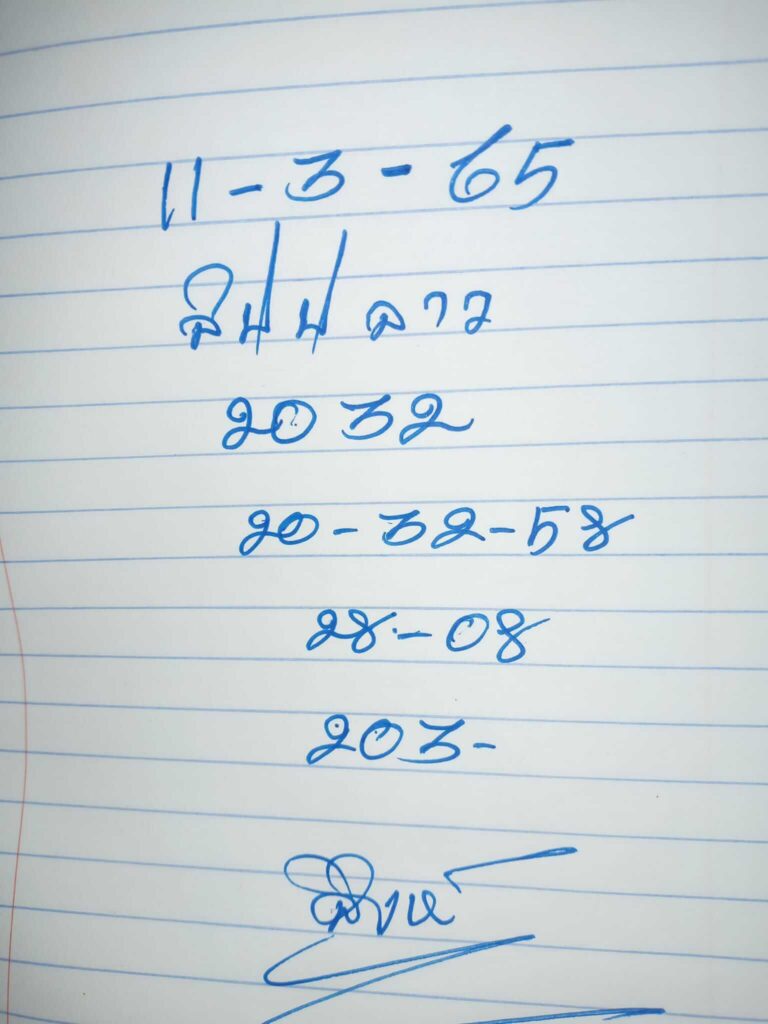 11-3-65
สิปปลาว
2032
20-32-58
28-08
203-
สิงห์